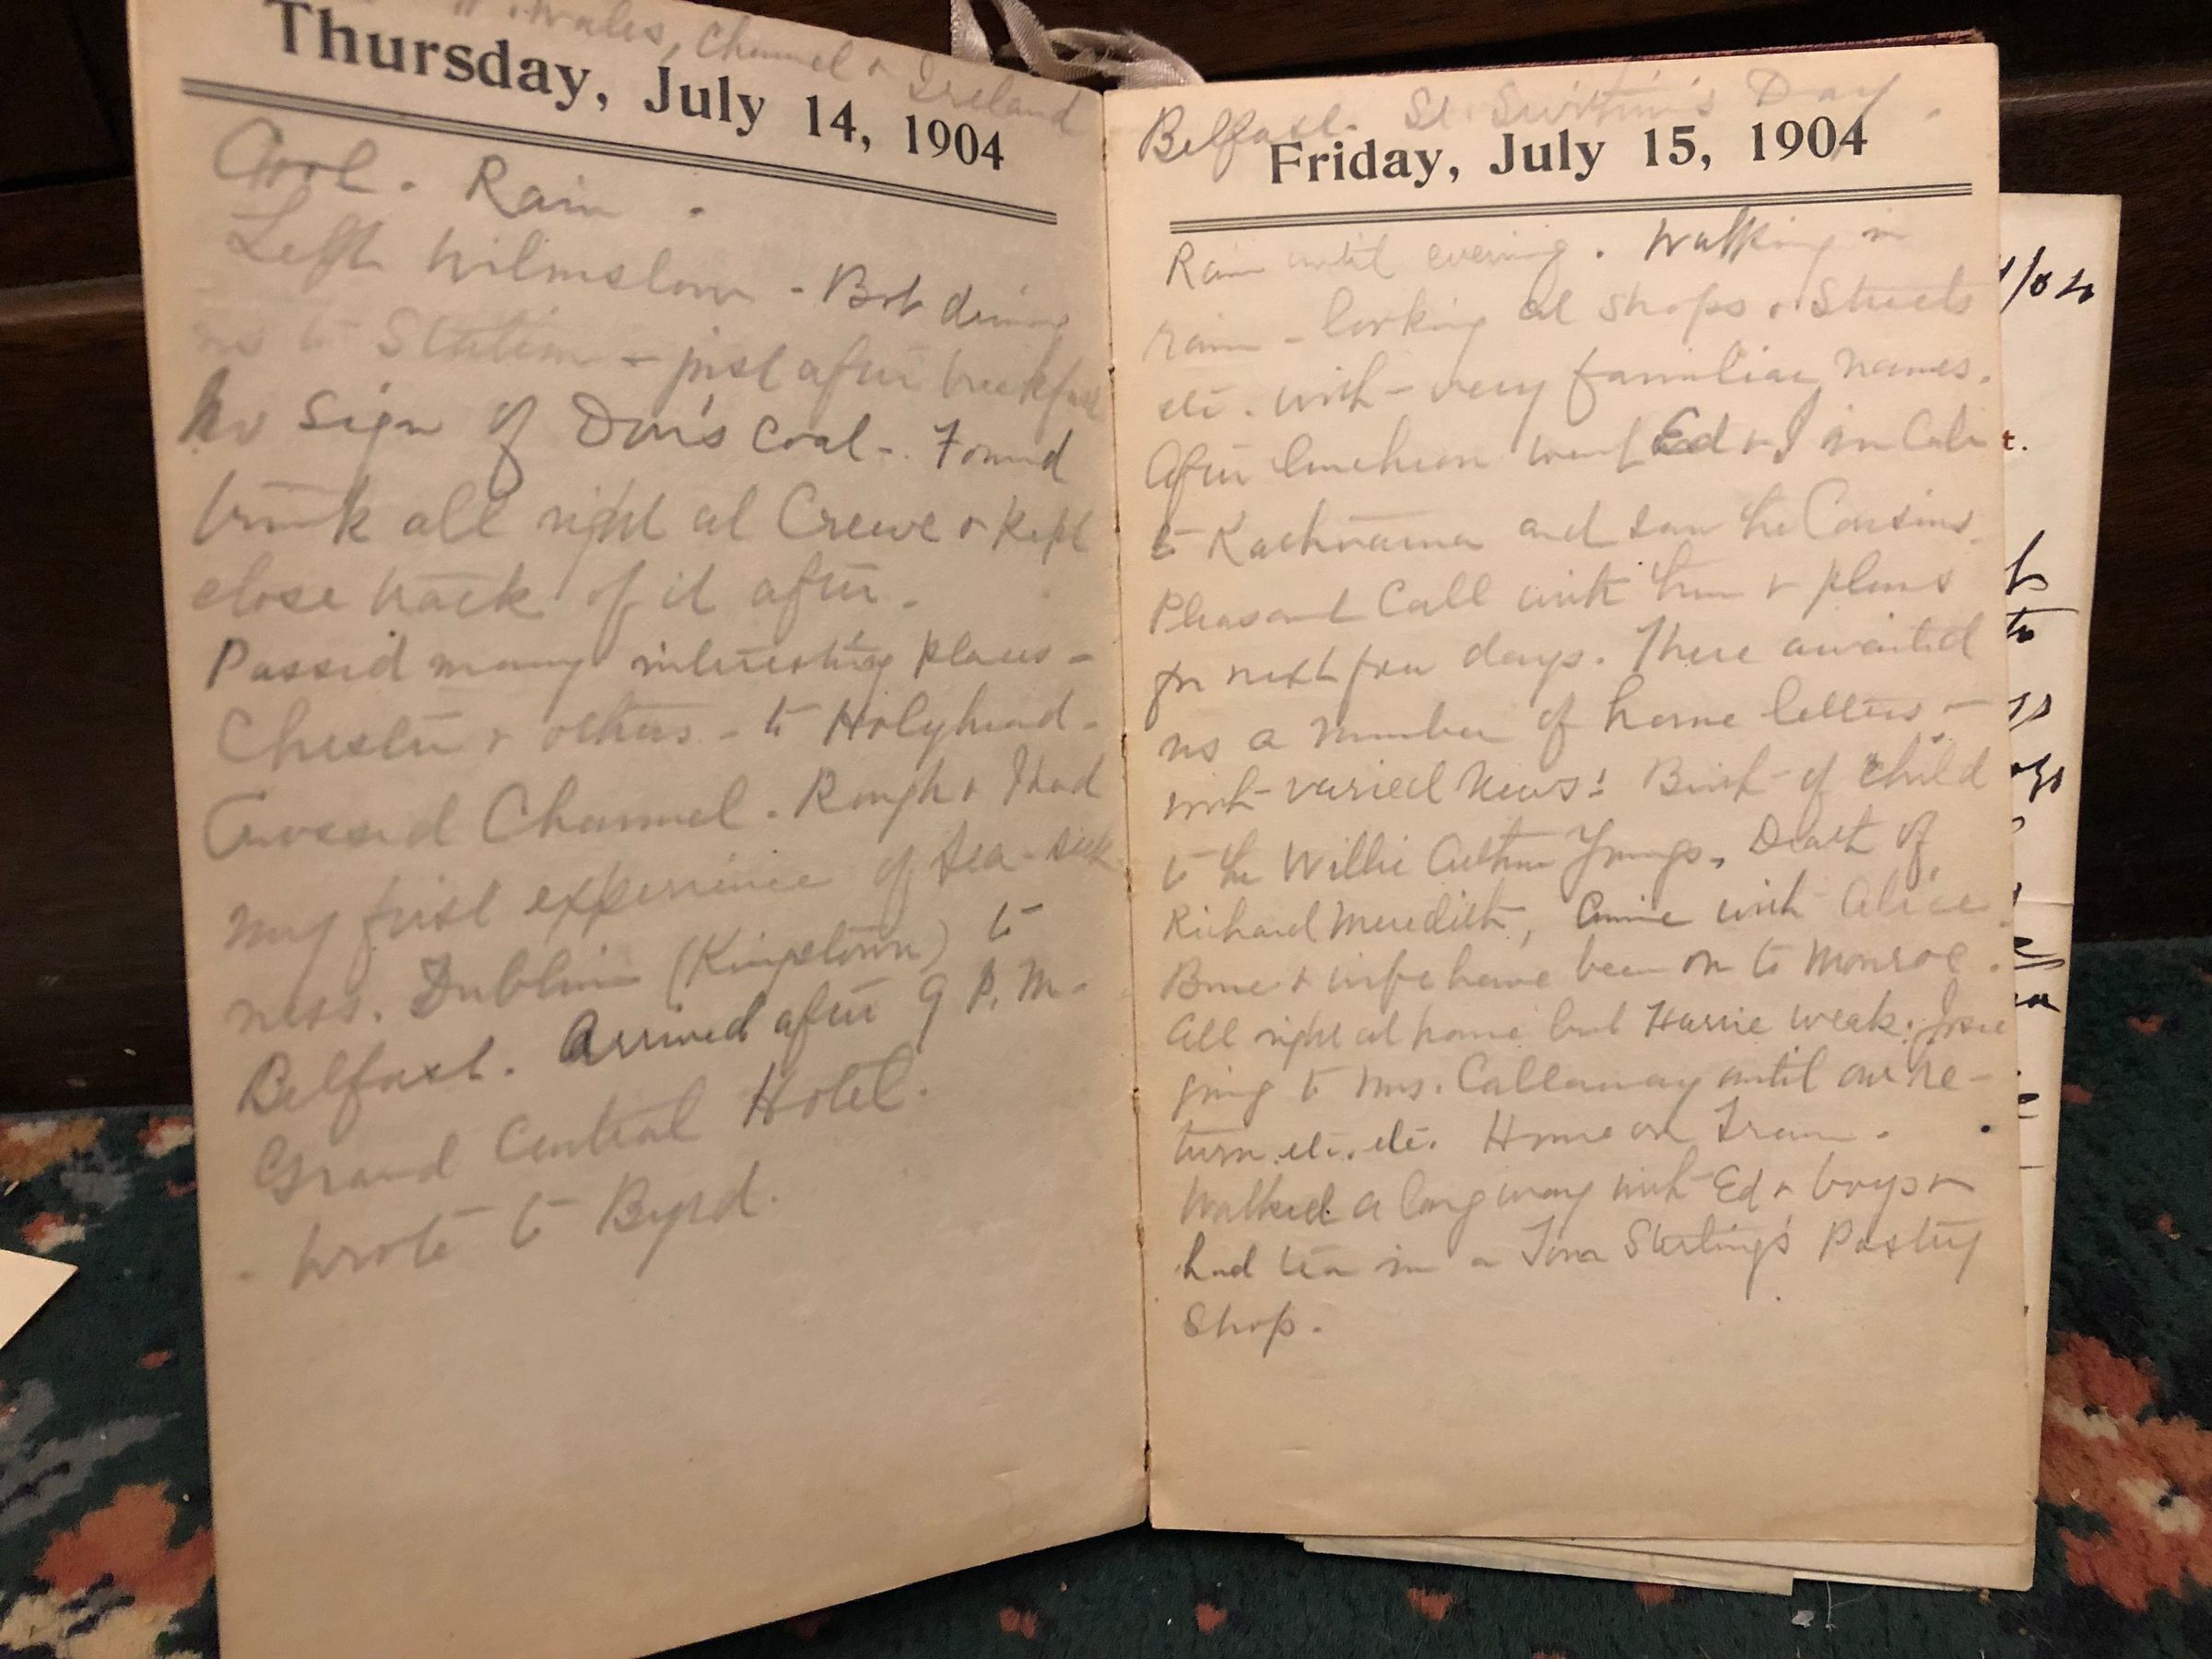 Wales, Channel & Ireland
Thursday, July 14, 1904
Cool. Rain.
Left Wilmslow - Bob driving
us to Station - just after breakfast
No sign of Don's coat -. Found
trunk all right at Crewe & kept
close track of it after.
Passed many interesting places -
Chester & others - to Holyhead -
Crossed Channel. Rough & I had
my first experience of sea-sick
ness. Dublin (Kingstown) to
Belfast. Arrived after 9 P.M.
Grand Central Hotel.
- Wrote to Byrd.
Belfast. St. Swithin's Day.
Friday, July 15, 1904
Rain until evening. Walking in
rain - looking at shops & Streets
etc. with - very familiar names.
After luncheon went Ed & I in Cab
to and saw the Cousins.
Pleasant Call with them & plans
for next few days. There awaited
us a number of home letters -
with varied News: Birth of child
to the Willie Arthur Youngs, Death of
Richard Meredith, Annie with Alice
& wife have been on to Monroe.
All right at home but weak. Josie
going to Mrs. Callaway until our re-
turn. etc. etc. Home on Tram.
Walked a long way with Ed & boys &
had tea in a Pastry
Shop.